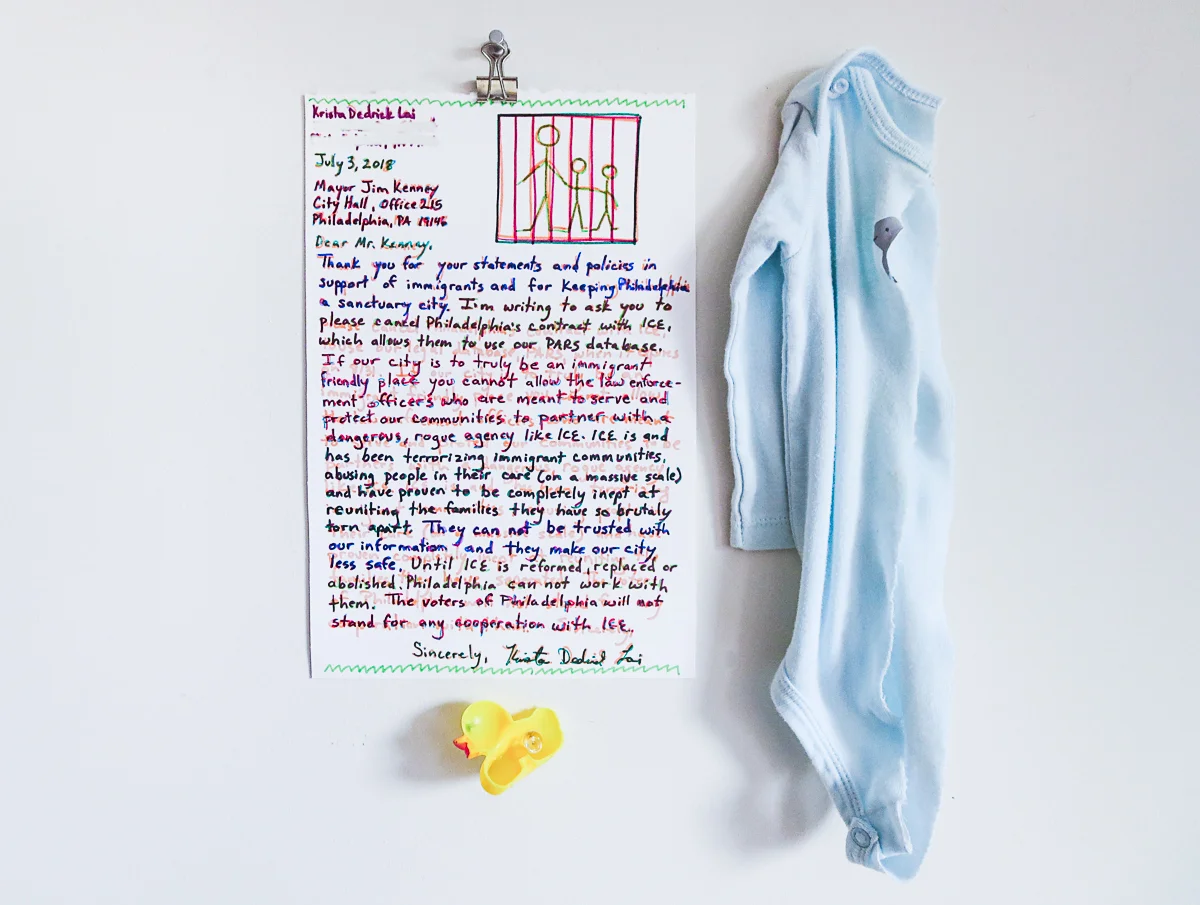 Krista Dedrick Lai
July 3, 2018
Mayor Jim Kenney
City Hall, Office 215
Philadelphia, PA 19146
Dear Mr. Kenney,
Thank you for your statements and policies in
support of immigrants and for keeping Philadelphia
a sanctuary city. I'm writing to ask you to
please cancel Philadelphia's contract with ICE,
which allows them to use our PARS database.
If our city is to truly be an immigrant
friendly place you cannot allow the law enforce-
ment officers who are meant to serve and
protect our communities to partner with a
dangerous, rogue agency like ICE. ICE is and
has been terrorizing immigrant communities,
abusing people in their care (on a massive scale)
and have proven to be completely inept at
reuniting the families they have so brutaly
torn apart. They can not be trusted with
our information and they make our city
less safe. Until ICE is reformed, replaced or
abolished. Philadelphia can not work with
them. The voters of Philadelphia will not
stand for any cooperation with ICE.
Sincerely, Krista Dedrick Lai